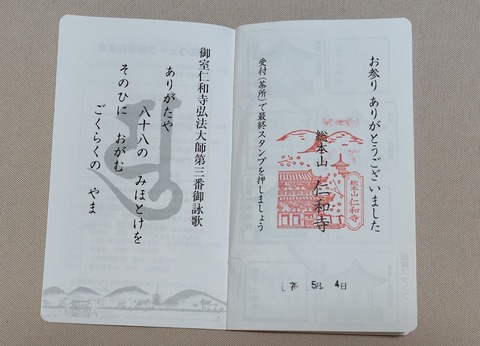 お参り ありがとうございました
総本山 仁和寺
総本山 仁和寺
受付(茶所)で最終スタンプを押しましょう
5月 4日
御室仁和寺弘法大師第三番御詠歌
ありがたや
八十八の みほとけを
そのひに おがむ
ごくらくの やま